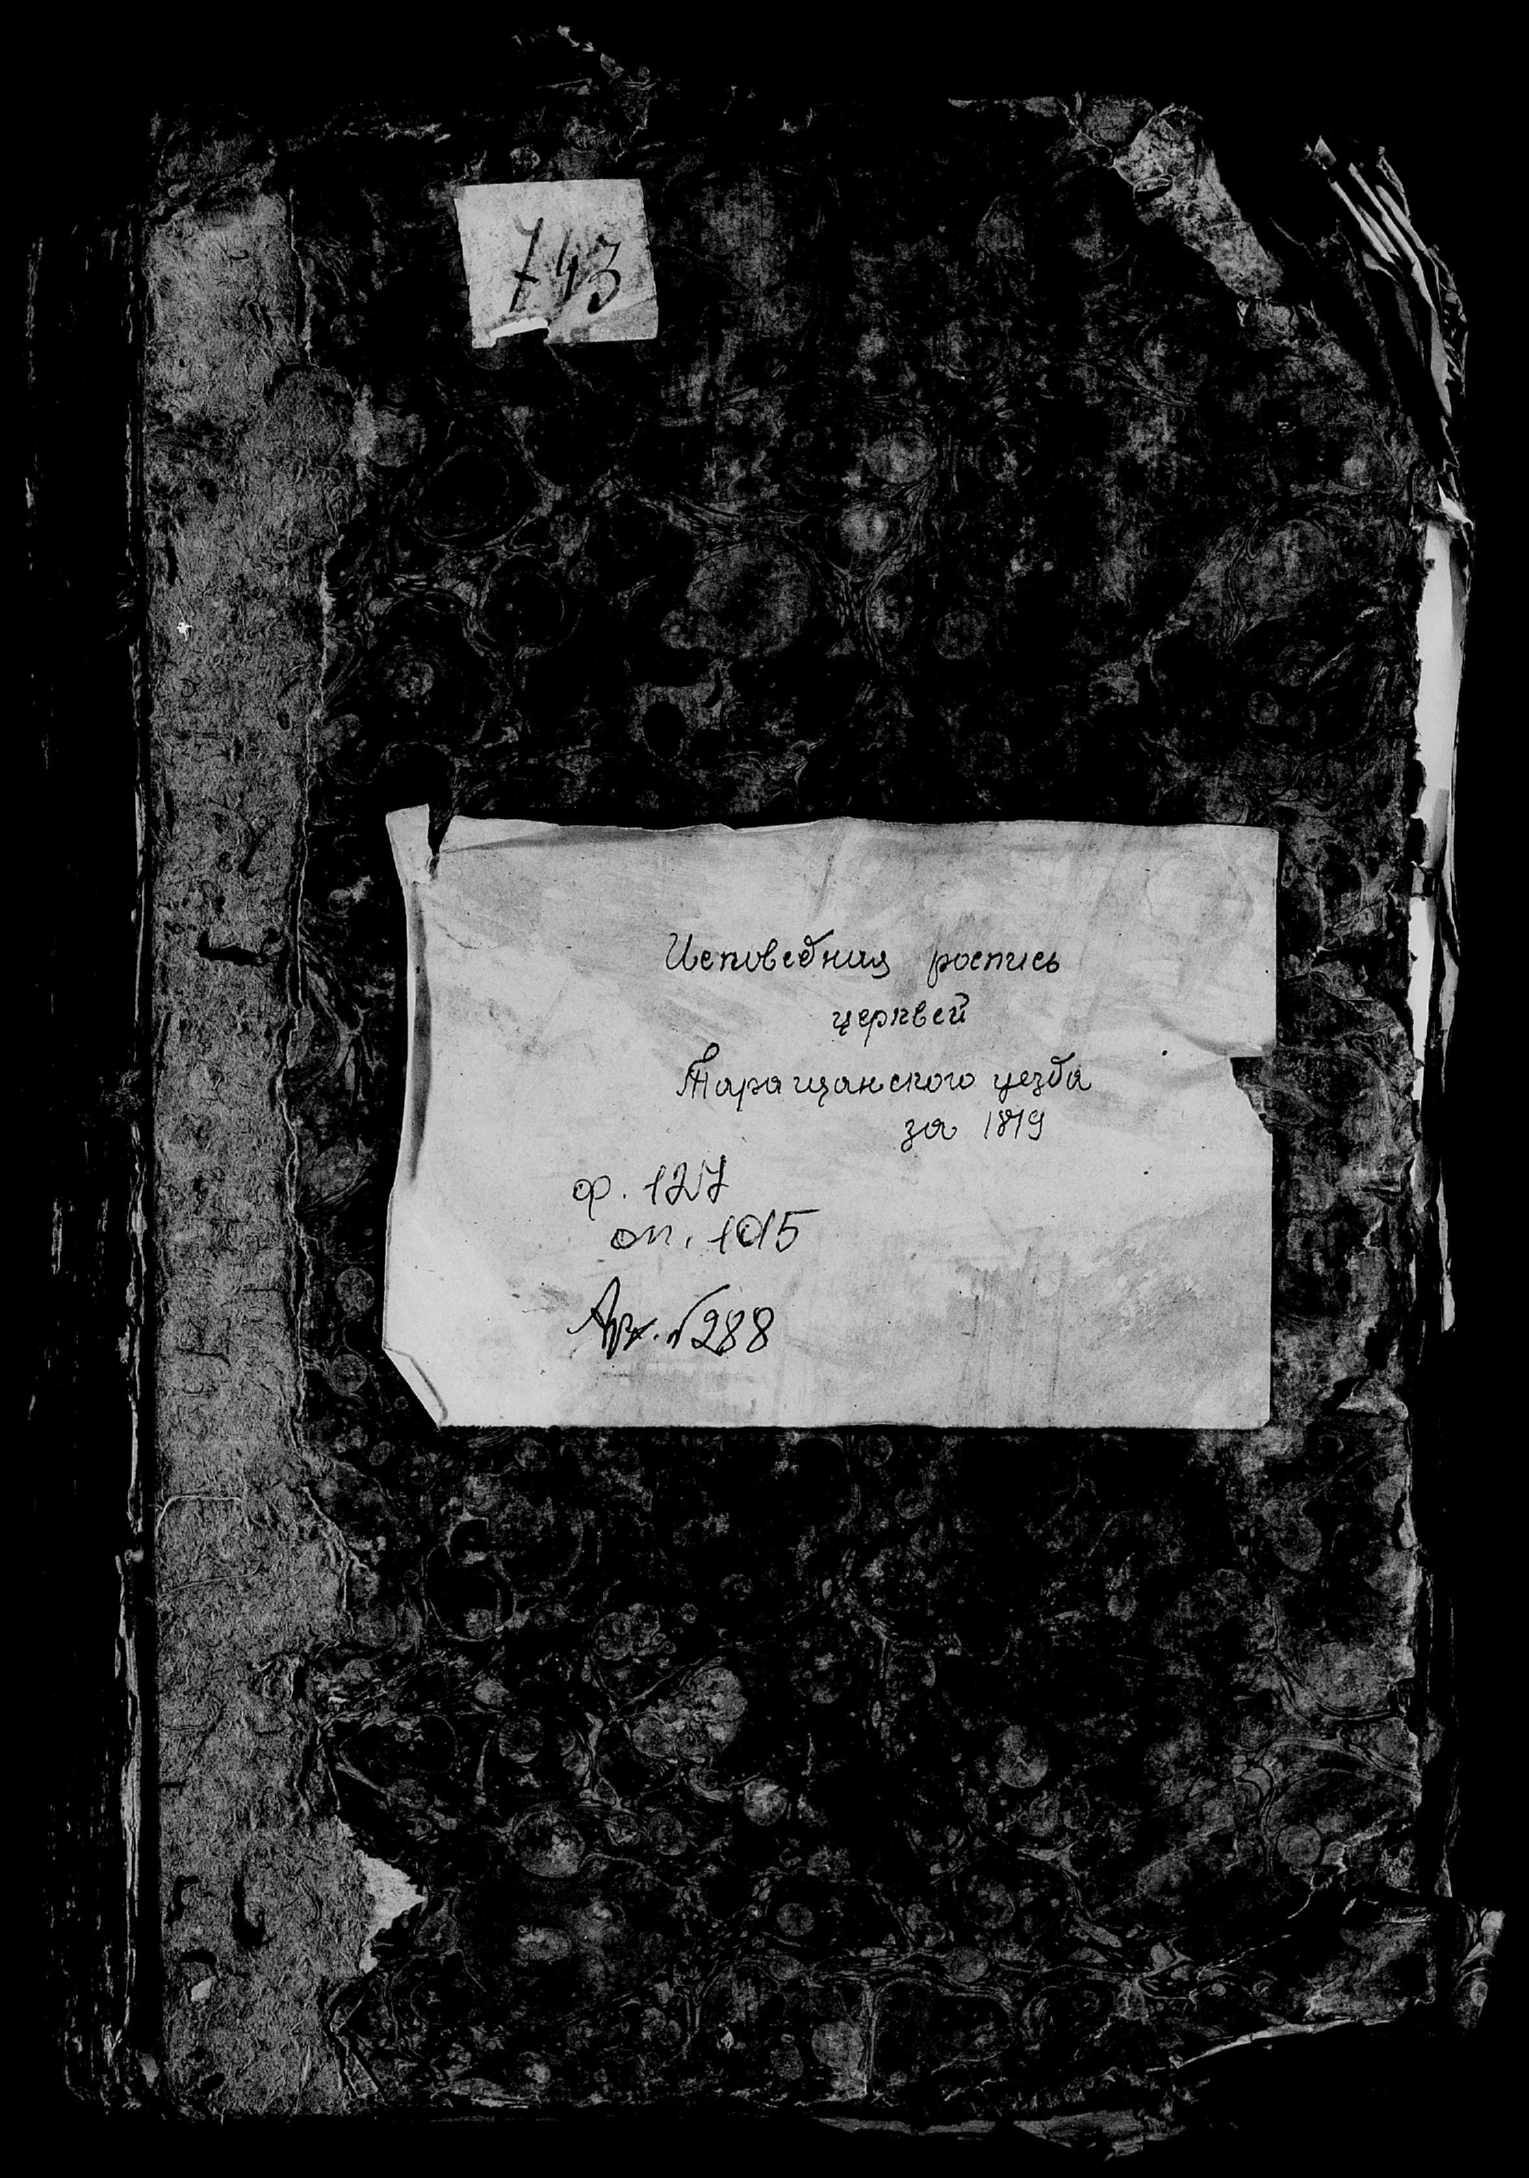 743
Исповедная роспись
церквей
Таращанского уезда
за 1819
ф. 127
оп. 1015
Арх. №288